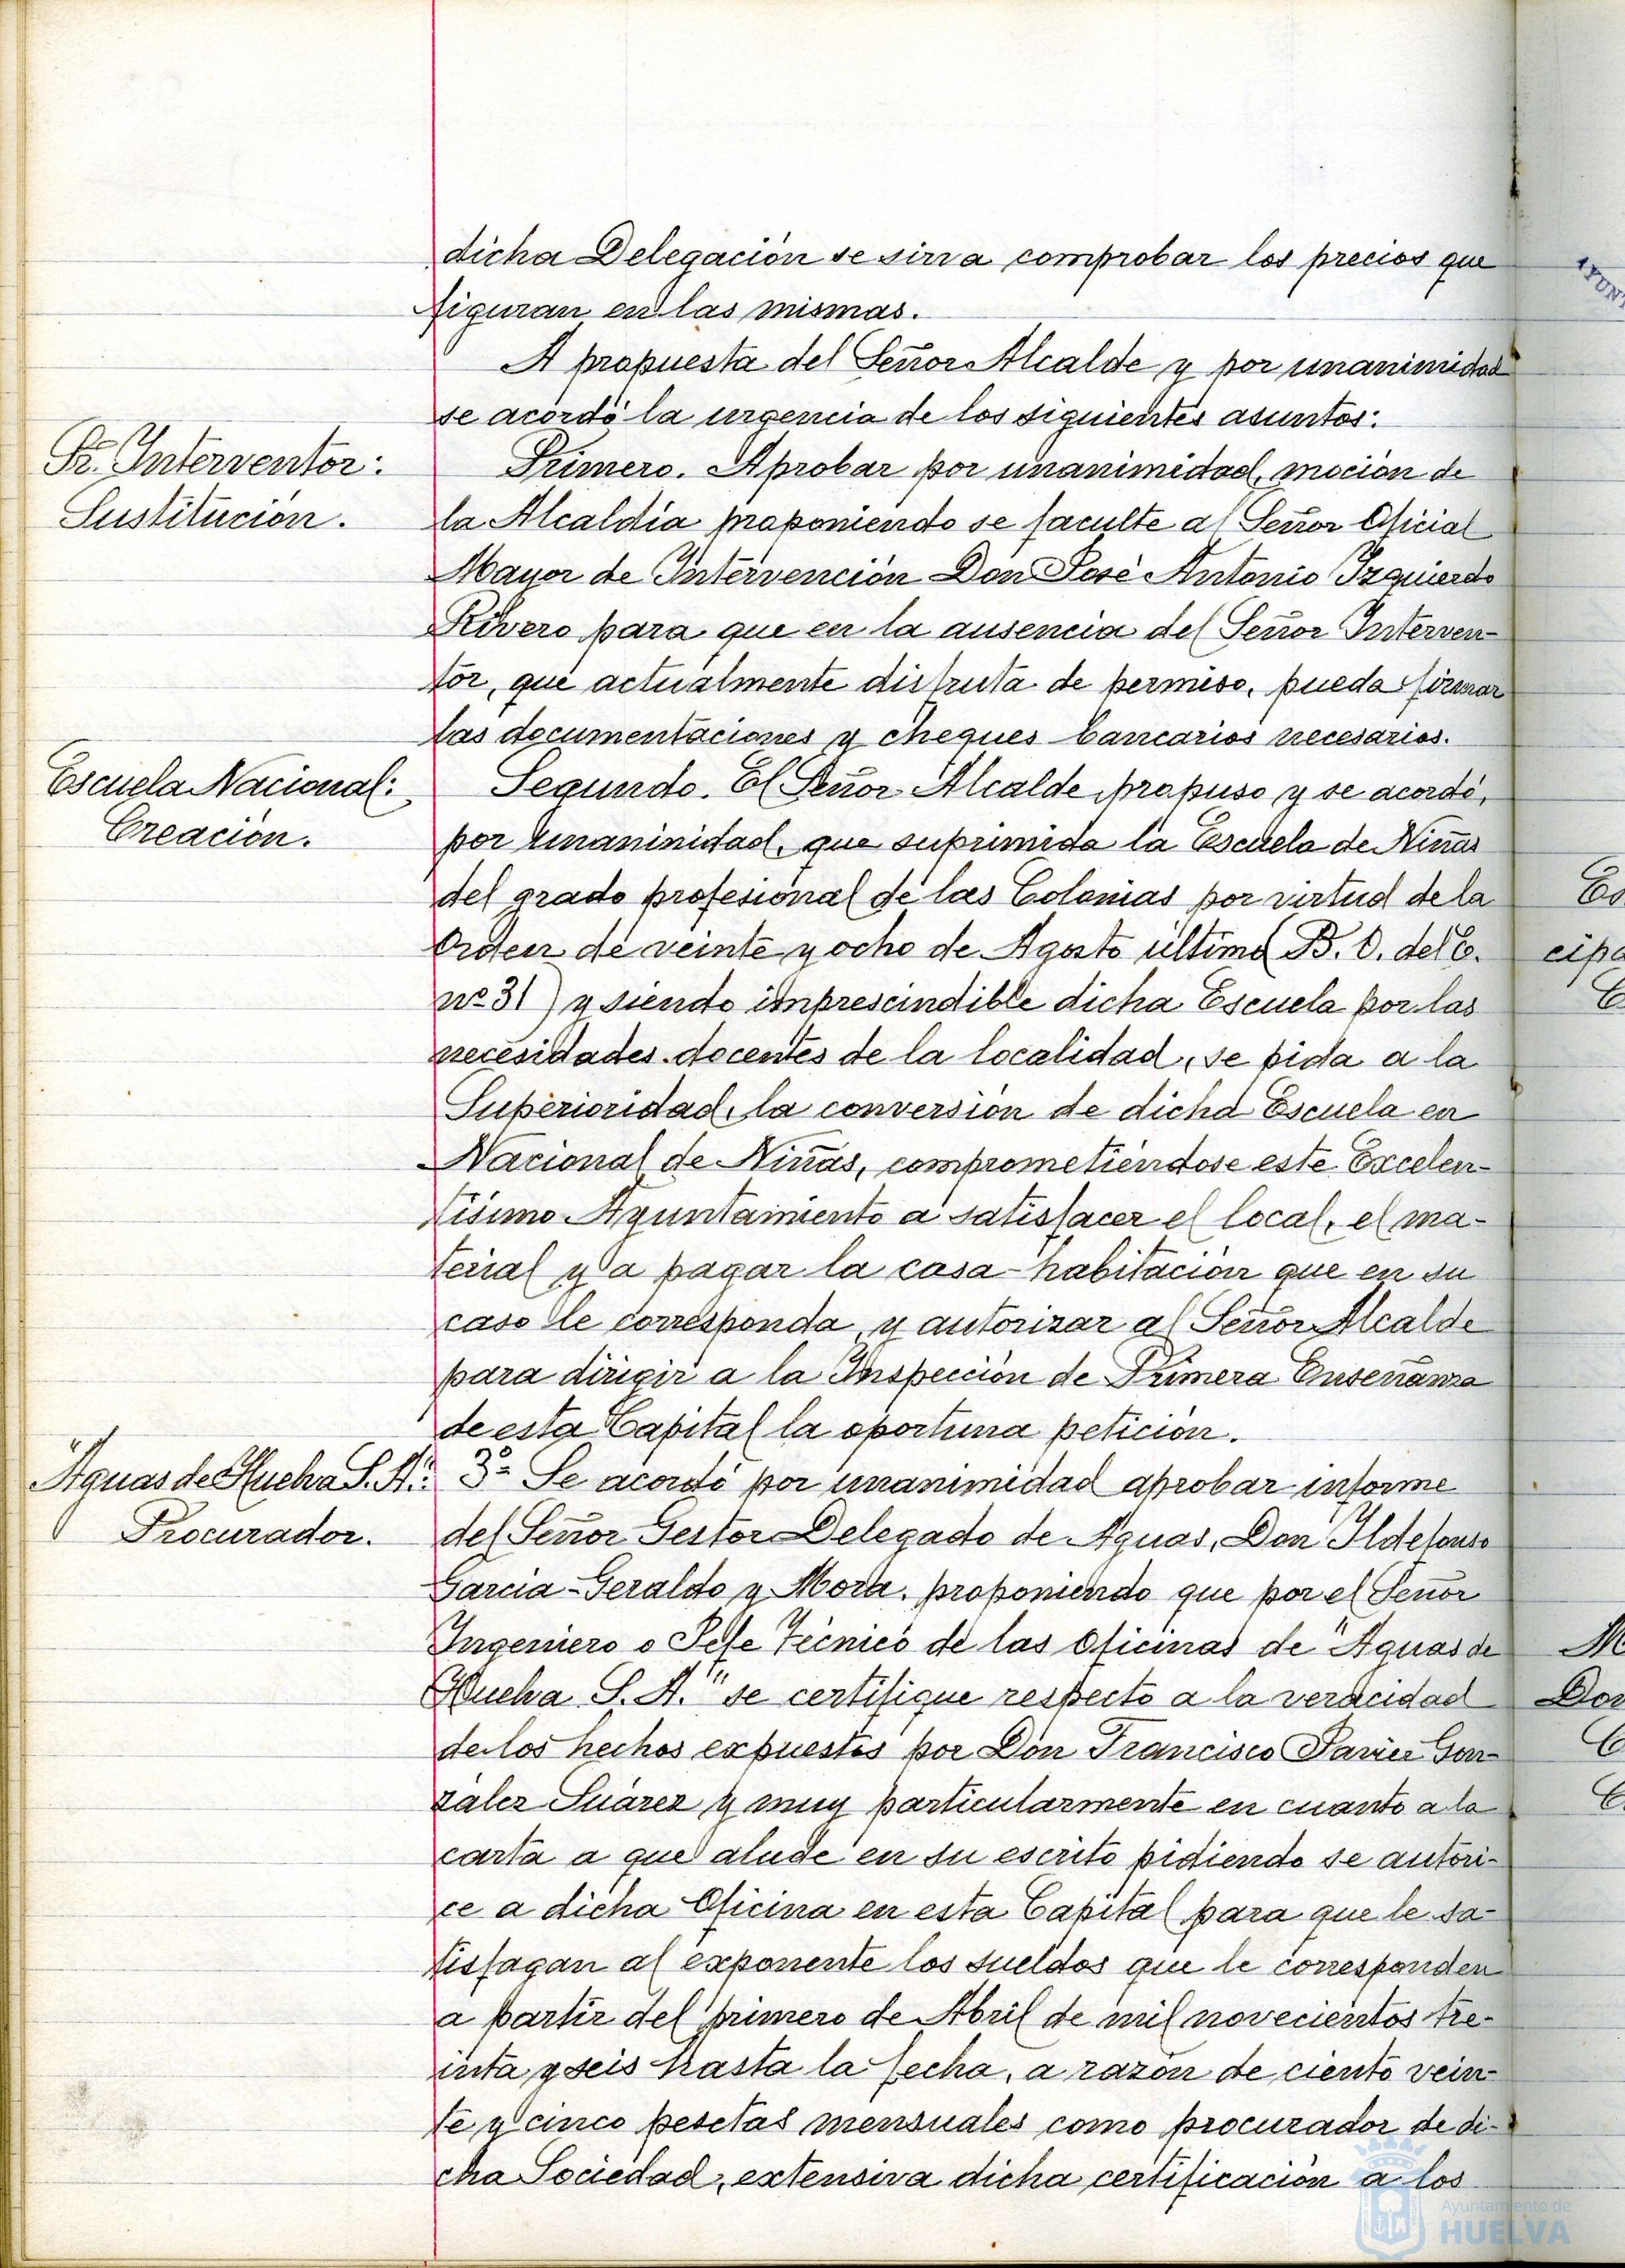 dicha Delegación se sirva comprobar los precios que
figuran en las mismas.
A propuesta del Señor Alcalde y por unanimidad
se acordó la urgencia de los siguientes asuntos:
Sr. Interventor:
Sustitución.
Primero. Aprobar por unanimidad, moción de
la Alcaldía proponiendo se faculte al Señor Oficial
Mayor de Intervención Don José Antonio Izquierdo
Rivero para que en la ausencia del Señor Interven-
tor, que actualmente disfruta de permiso, pueda firmar
las documentaciones y cheques bancarios necesarios.
Escuela Nacional:
Creación.
Segundo. El Señor Alcalde propuso y se acordó,
por unaninidad, que suprimida la Escuela de Niñas
del grado profesional de las Colonias por virtud de la
Orden de veinte y ocho de Agosto último (B. O. del E.
nº 31) y siendo imprescindible dicha Escuela por las
necesidades docentes de la localidad, se pida a la
Superioridad, la conversión de dicha Escuela en
Nacional de Niñas, comprometiéndose este Excelen-
tísimo Ayuntamiento a satisfacer el local, el ma-
terial y a pagar la casa-habitación que en su
caso le corresponda, y autorizar al Señor Alcalde
para dirigir a la Inspección de Primera Enseñanza
de esta Capital la oportuna petición.
"Aguas de Huelva S. A.":
Procurador.
3º Se acordó por unanimidad aprobar informe
del Señor Gestor Delegado de Aguas, Don Ildefonso
Garcia-Geraldo y Mora, proponiendo que por el Señor
Ingeniero o Jefe Técnico de las Oficinas de "Aguas de
Huelva S. A." se certifique respecto a la veracidad
de los hechos expuestos por Don Francisco Javier Gon-
zález Suárez y muy particularmente en cuanto a la
carta a que alude en su escrito pidiendo se autori-
ce a dicha Oficina en esta Capital para que le sa-
tisfagan al exponente los sueldos que le corresponden
a partir del primero de Abril de mil novecientos tre-
inta y seis hasta la fecha, a razón de ciento vein-
te y cinco pesetas mensuales como procurador de di-
cha Sociedad, extensiva dicha certificación a los
Ayuntamiento de
HUELVA